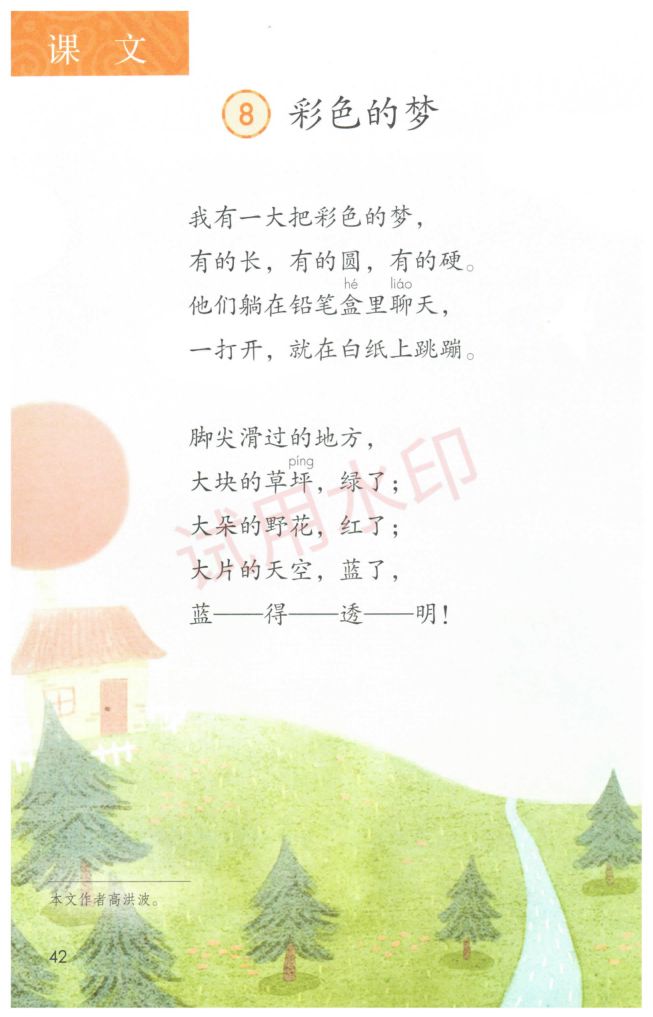 课 文
8 彩色的梦
我有一大把彩色的梦，
有的长，有的圆，有的硬。
hé liáo
他们躺在铅笔盒里聊天，
一打开，就在白纸上跳蹦。
脚尖滑过的地方，
píng
大块的草坪，绿了；
大朵的野花，红了；
大片的天空，蓝了，
蓝——得——透——明！
试用水印
本文作者高洪波。
42